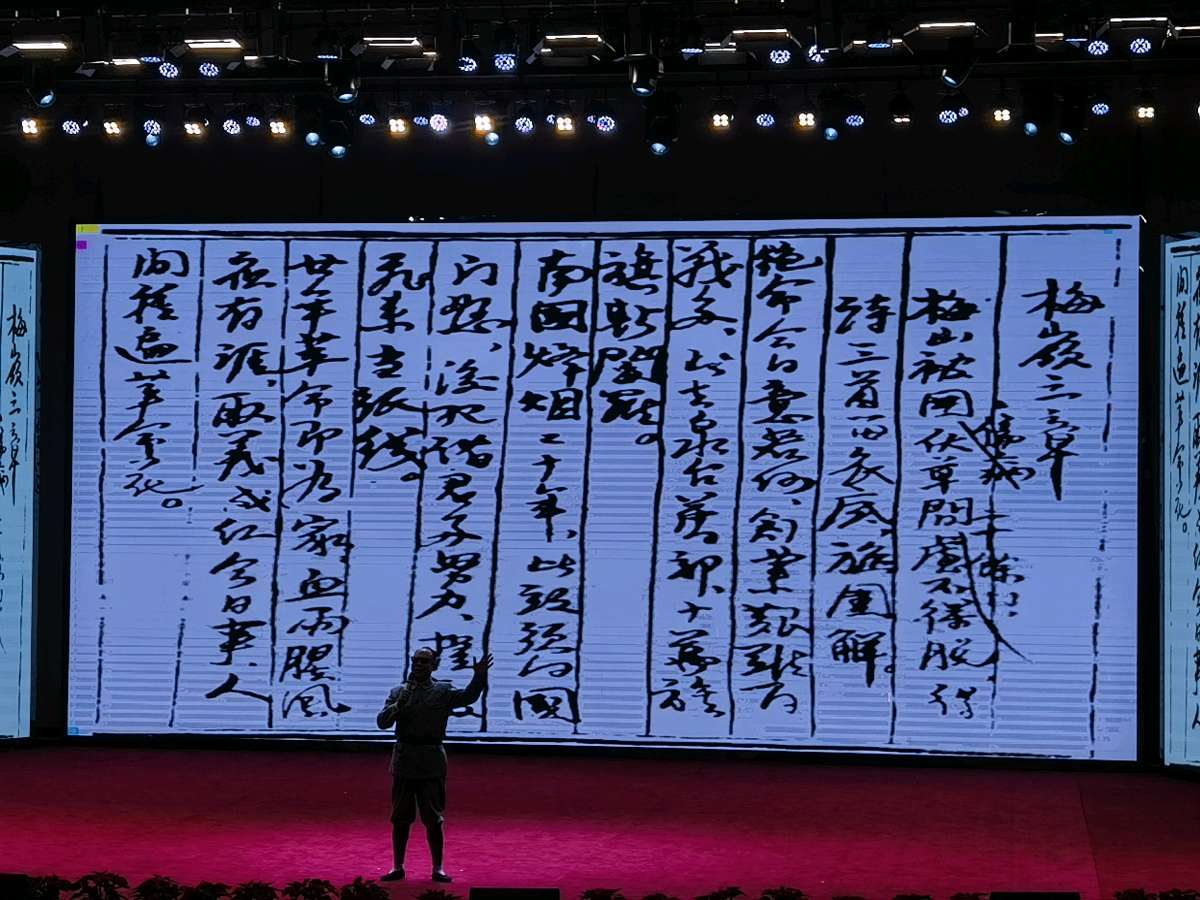 梅岭三章
梅山被围伏草间虑不得脱、得
伤病
二十余日
诗三首留衣底、旋围解。
绝命今日意若何、创业艰难百
战多、此去泉台旧部、十萬旌
旗斩阎罗。
南國烽烟二十年、此头须向國
门悬、後死诸君多努力、捷
飞来当纸钱。
廿年革命即为家、血雨腥风
应有涯、取义成仁今日事、人
间种遍革命花。
梅岭三章
间种遍革命花。